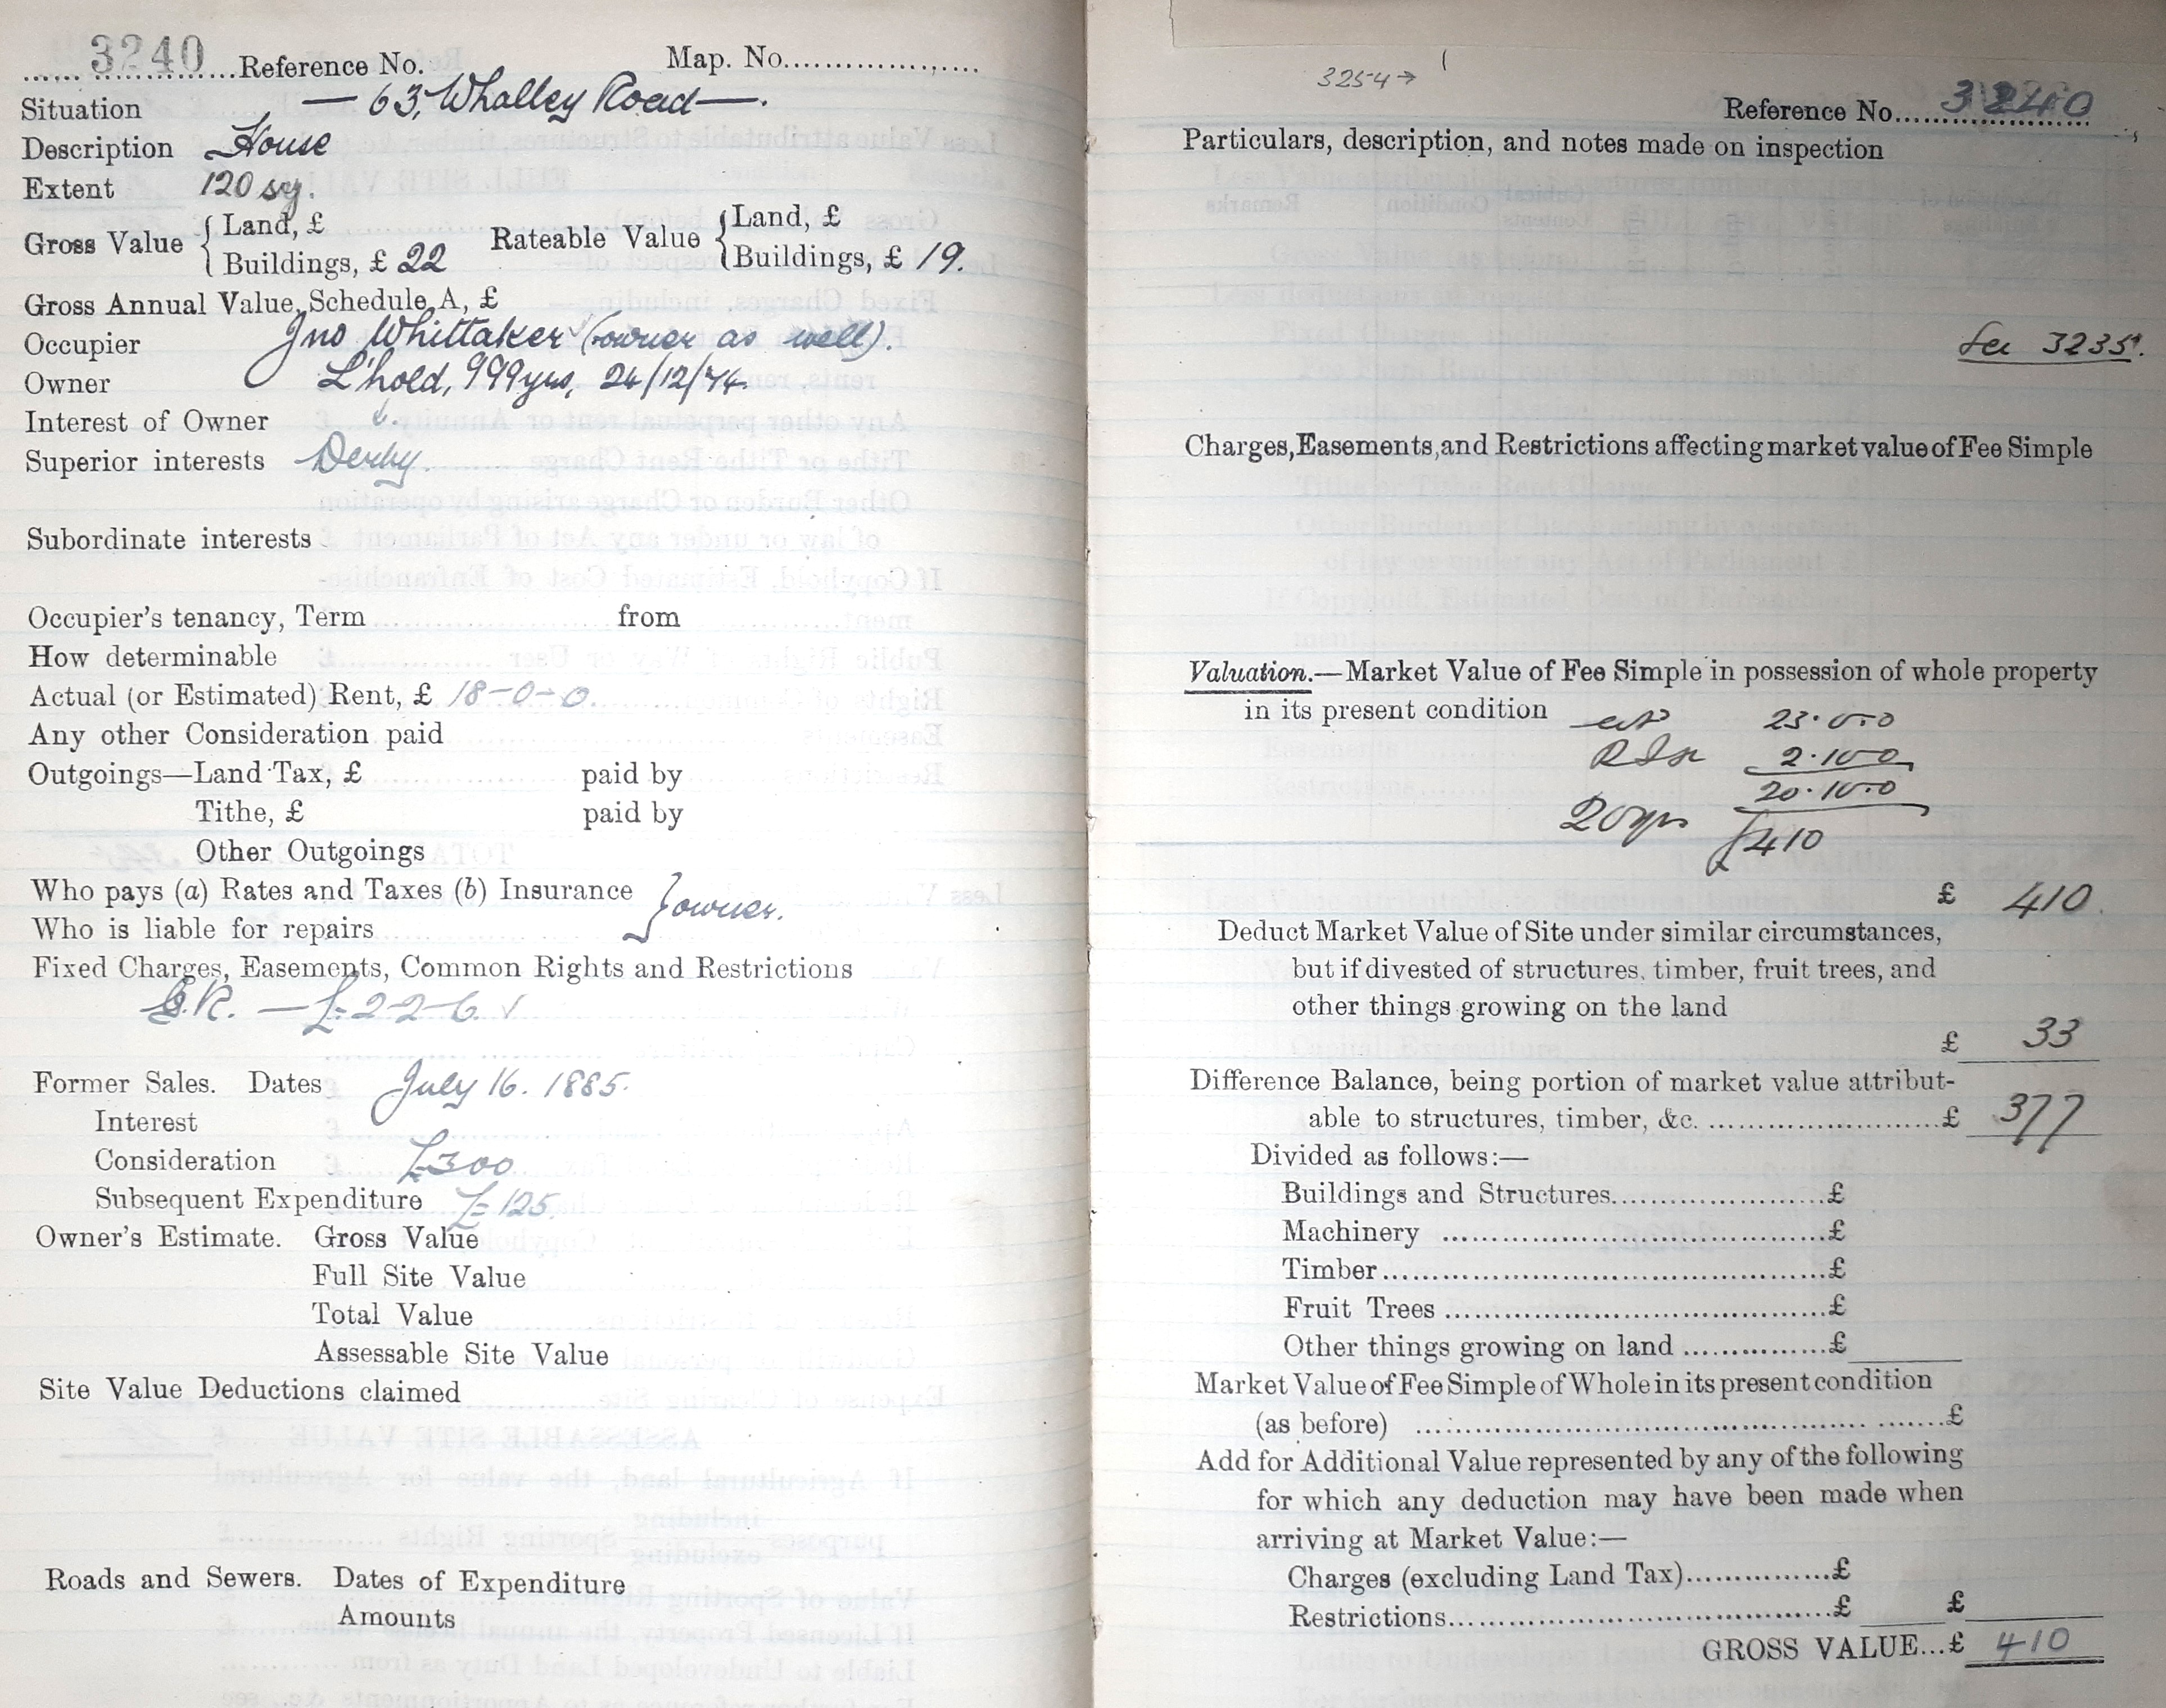 3240 Reference No. Map. No.
Situation — 63, Whalley Road —.
Description House
Extent 120 sy.
Gross Value { Land, £ Rateable Value { Land, £
Buildings, £ 22 Buildings, £ 19.
Gross Annual Value, Schedule A, £
Occupier Jno Whittaker (owner as well).
Owner L'hold, 999 yrs, 24/12/74.
Interest of Owner
Superior interests Derby.
Subordinate interests
Occupier's tenancy, Term from
How determinable
Actual (or Estimated) Rent, £ 18-0-0.
Any other Consideration paid
Outgoings—Land Tax, £ paid by
Tithe, £ paid by
Other Outgoings
Who pays (a) Rates and Taxes (b) Insurance } owner.
Who is liable for repairs
Fixed Charges, Easements, Common Rights and Restrictions
G.R. — £2-2-6. ✓
Former Sales. Dates July 16. 1885.
Interest
Consideration £300
Subsequent Expenditure £125.
Owner's Estimate. Gross Value
Full Site Value
Total Value
Assessable Site Value
Site Value Deductions claimed
Roads and Sewers. Dates of Expenditure
Amounts
3254 →
Reference No. 3240
Particulars, description, and notes made on inspection
See 3235.
Charges, Easements, and Restrictions affecting market value of Fee Simple
Valuation.—Market Value of Fee Simple in possession of whole property
in its present condition 23.0.0
2.10.0
20.10.0
20 yrs £410
£ 410.
Deduct Market Value of Site under similar circumstances,
but if divested of structures, timber, fruit trees, and
other things growing on the land
£ 33
Difference Balance, being portion of market value attribut-
able to structures, timber, &c. £ 377
Divided as follows:—
Buildings and Structures £
Machinery £
Timber £
Fruit Trees £
Other things growing on land £
Market Value of Fee Simple of Whole in its present condition
(as before) £
Add for Additional Value represented by any of the following
for which any deduction may have been made when
arriving at Market Value:—
Charges (excluding Land Tax) £
Restrictions £ £
GROSS VALUE... £ 410